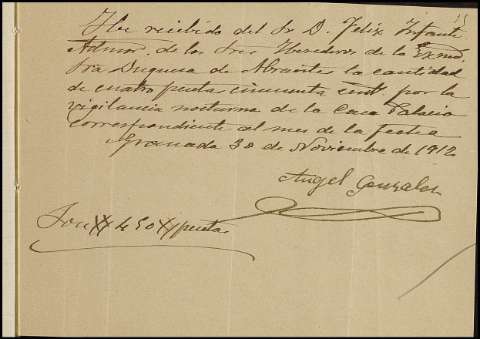 15
He recibido del Sr. D. Felix Infante
Admor. de los Sres Herederos de la Exma.
Sra Duquesa de Abrantes la cantidad
de cuatro pesetas cincuenta cents por la
vigilancia nocturna de la Casa Palacio
correspondiente al mes de la fecha
Granada 30 de Noviembre de 1912
Angel Gonzalez
Son 4,50 pesetas